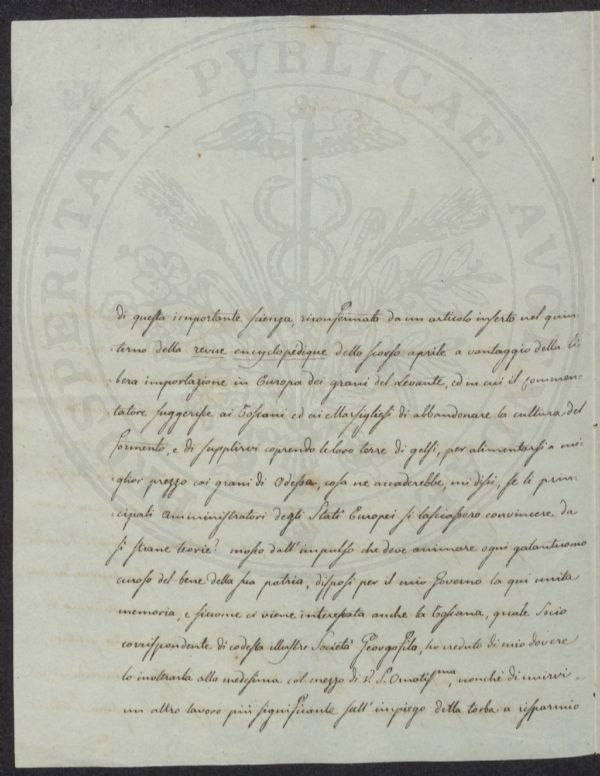 PROSPERITATI PVBLICAE AVG
di questa importante scienza, riconfermata da un articolo inserto nel quin-
terno della revue encyclopedique dello scorso aprile a vantaggio della li-
bera importazione in Europa dei grani del Levante, ed in cui il commen-
tatore suggerisce ai Toscani ed ai Marsigliesi di abbandonare la cultura del
formento, e di supplirvi coprendo le loro terre di gelsi, per alimentarsi a mi-
glior prezzo coi grani di Odessa, cosa ne accaderebbe, mi dissi, se li prin-
cipali amministratori degli Stati Europei si lasciassero convincere da
sì strane teorie? mosso dall'impulso che deve animare ogni galantuomo
curoso del bene della sua patria, disposi per il mio Governo la qui unita
memoria, e siccome ci viene interessata anche la Toscana, quale Socio
corrispondente di codesta illustre Società Geougofila, ho creduto di mio dovere
lo inoltrarla alla medesima col mezzo di V. S. Ornatisma, nonchè di unirvi
un altro lavoro più significante sull'impiego della torba a risparmio